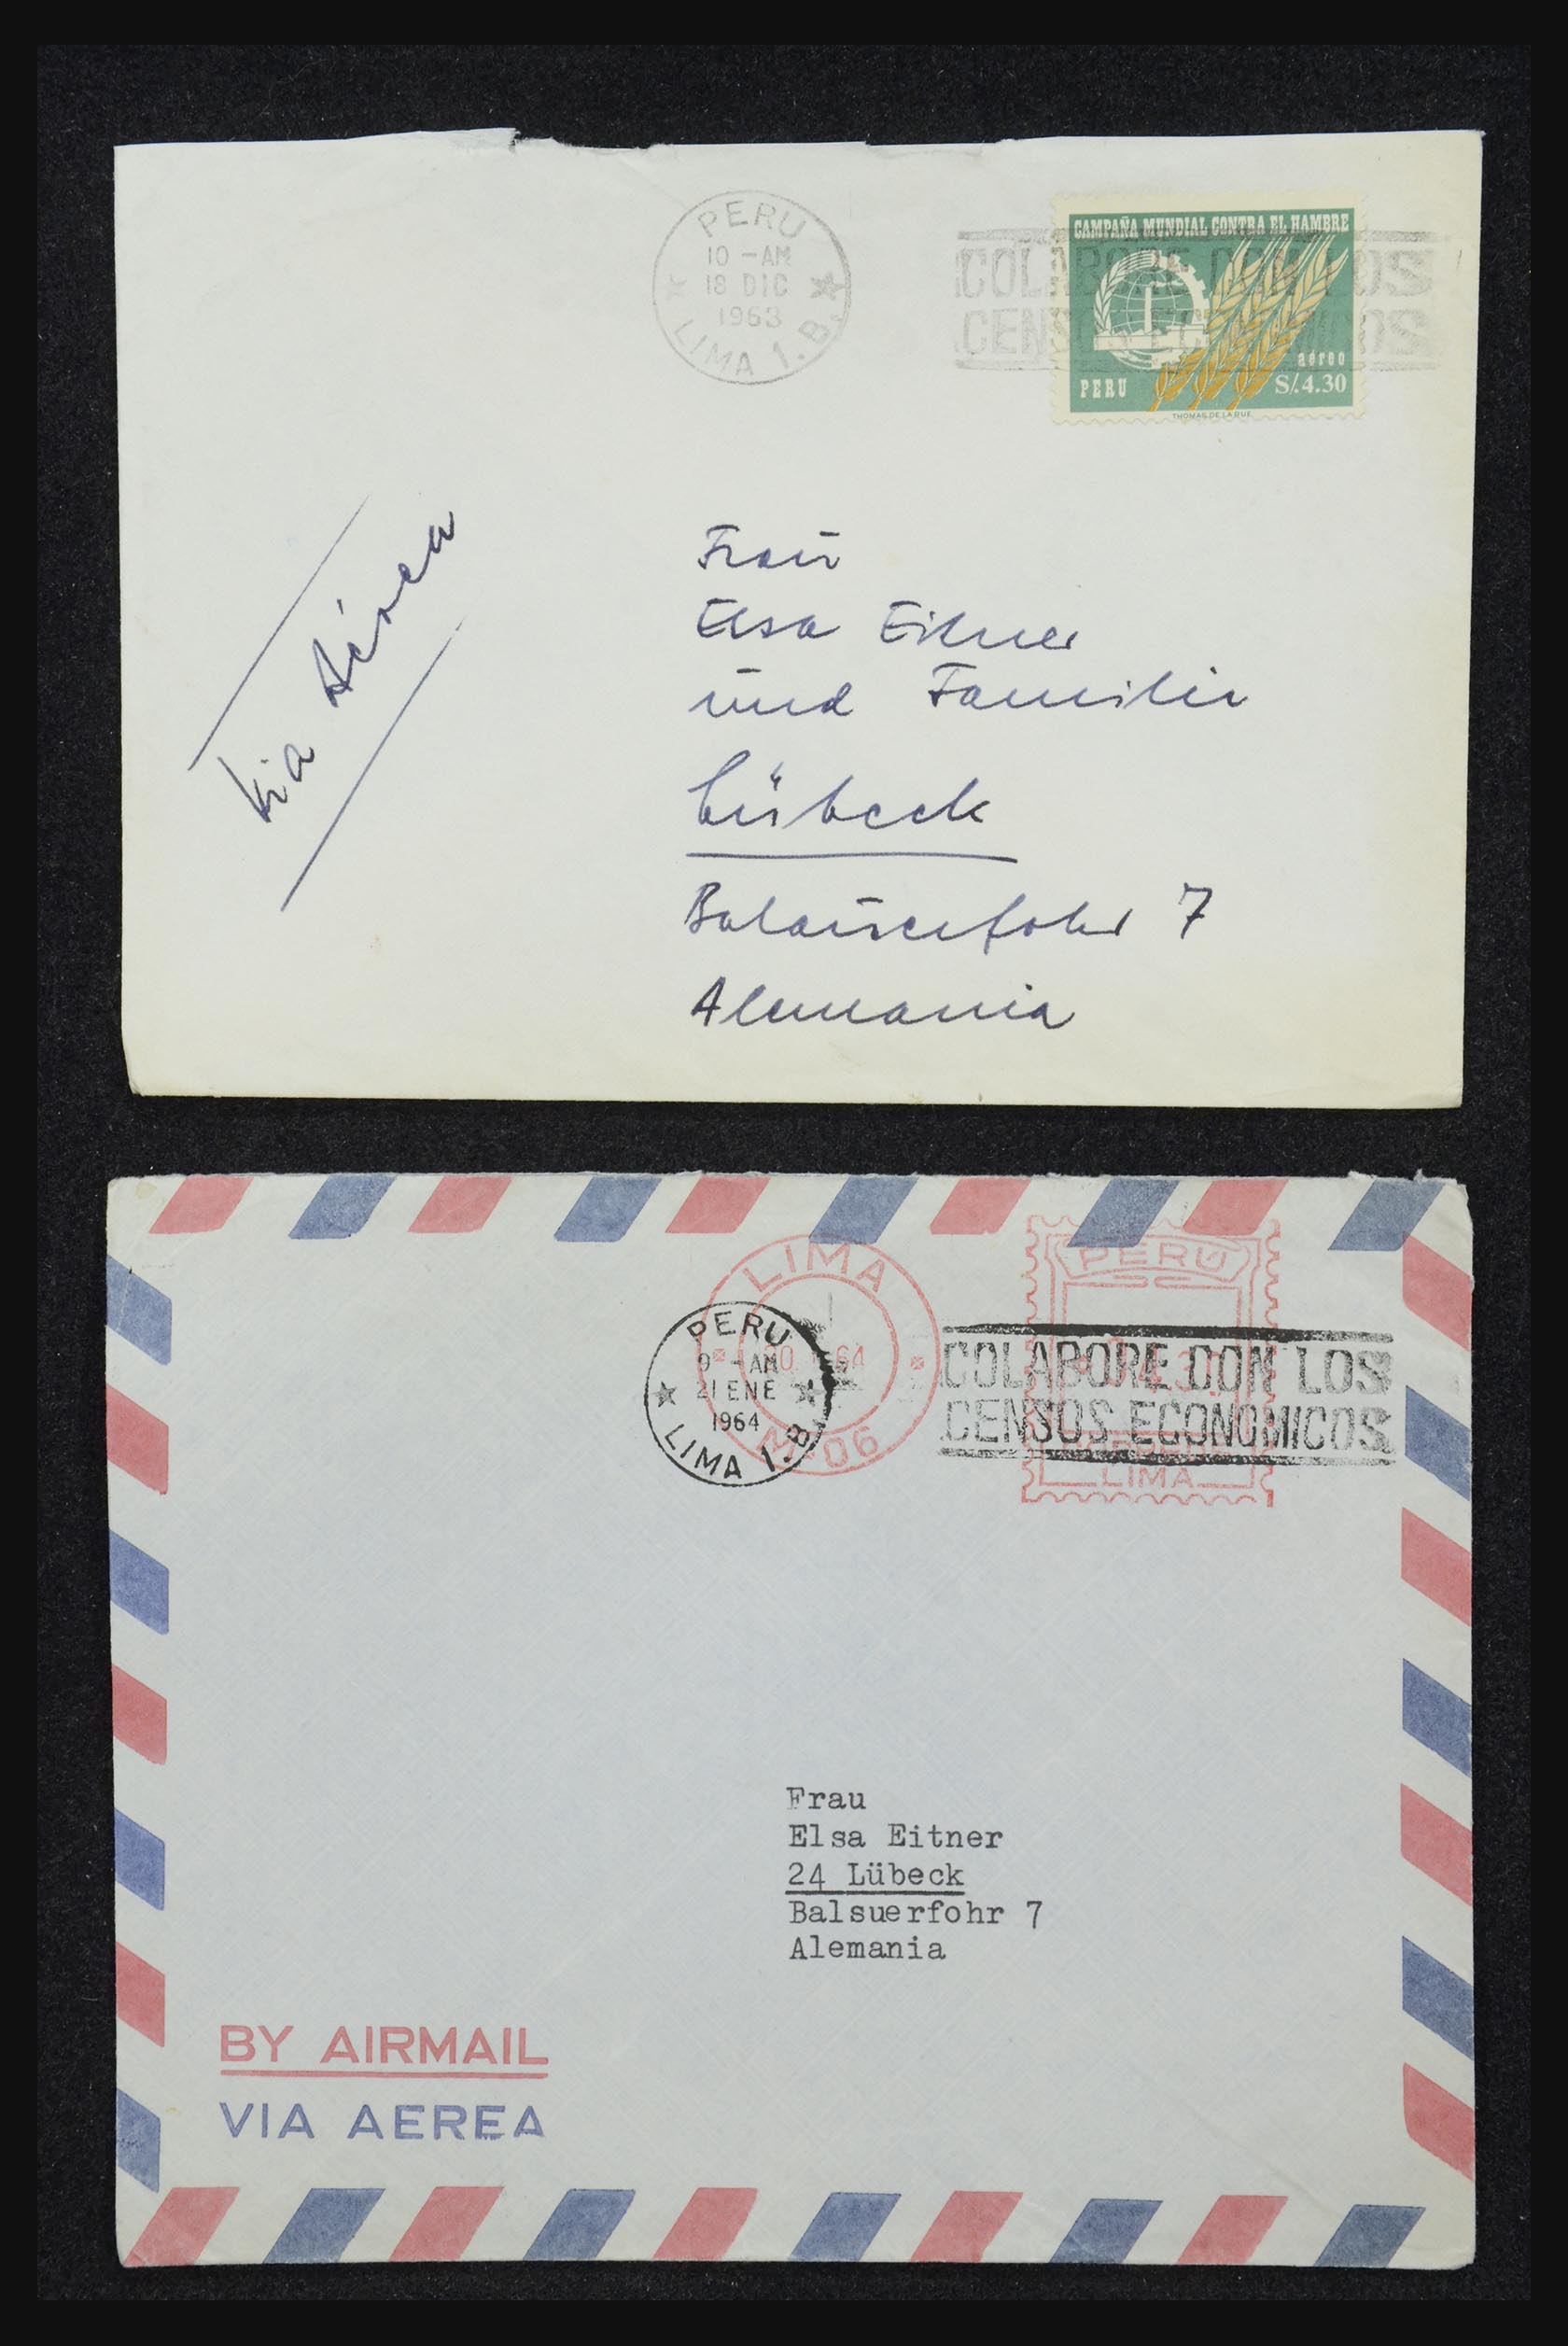 PERU
10 - AM
18 DIC
1963
LIMA 1. B.
COLABORE CON LOS
CENSOS ECONOMICOS
CAMPAÑA MUNDIAL CONTRA EL HAMBRE
aéreo
PERU S/.4.30
THOMAS DE LA RUE
Via Aérea
Frau
Elsa Eitner
und Familie
Lübeck
Balauerfohr 7
Alemania
LIMA
PERU
9 - AM
21 ENE
1964
LIMA 1. B.
64
M.06
PERU
COLABORE CON LOS
CENSOS ECONOMICOS
LIMA
Frau
Elsa Eitner
24 Lübeck
Balsuerfohr 7
Alemania
BY AIRMAIL
VIA AEREA